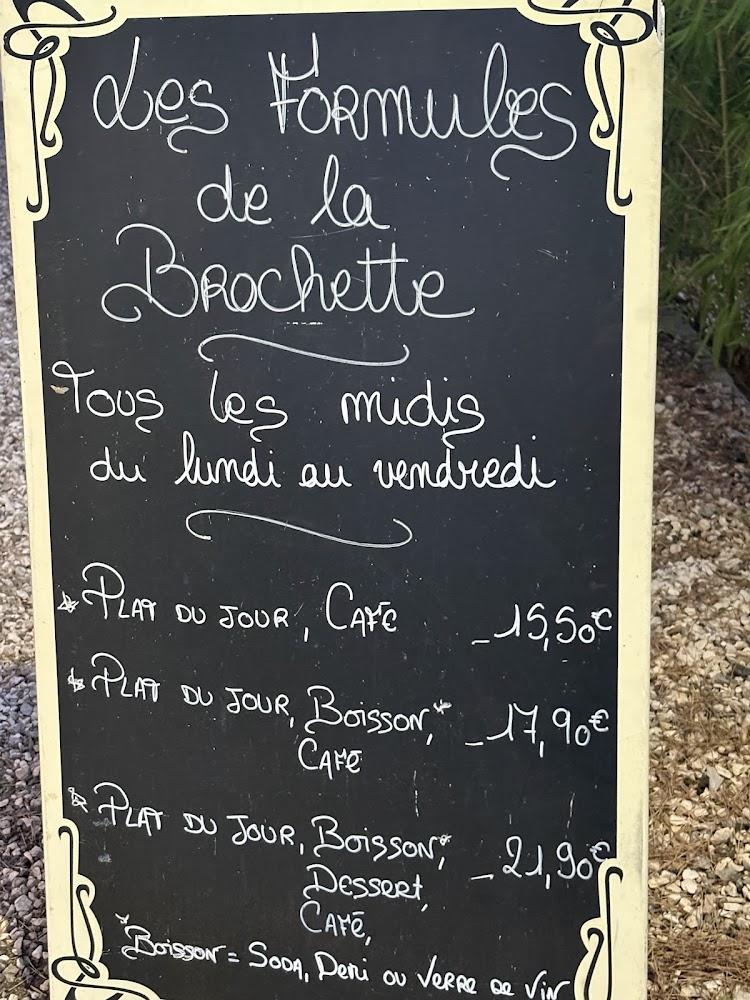 Les Formules
de la
Brochette
Tous les midis
du lundi au vendredi
* Plat du jour, Café _ 15,50€
* Plat du jour, Boisson,* _ 17,90€
Café
* Plat du jour, Boisson,* _ 21,90€
Dessert,
Café,
*Boisson = Soda, Demi ou Verre de Vin